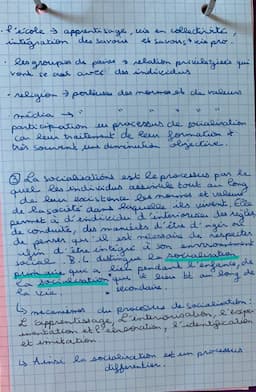 • l'école → apprentissage, vie en collectivité,
intégration des savoirs et savoirs + vie pro.
• les groupes de paires → relation privilégiée qui
vont se avec des individus
• religion → porteuse des normes et de valeurs
média → " " " "
participation au processus de socialisation
car leur traitement de leur formation et
très souvent une dimension objective.
② La socialisation est le processus par le
quel les individus assimile tout au long
de leur existence les normes et valeurs
de la société dans laquelle ils vivent. Elle
permet à d'individu d'intérioriser des règles
de conduite, des manières d'être d'agir et
de penser qu'il est nécessaire de respecter
afin d'être intégré à son environnement
social. B.L distingue la socialisation
primaire qui a lieu pendant l'enfance, de
la socialisation qui a lieu tt au long de
la vie. secondaire.
↳ mécanismes du processus de socialisation :
L'apprentissage, l'intériorisation, l'expé-
rimentation et l'identification
et imitation
↳ Ainsi la socialisation est un processus
différentier.